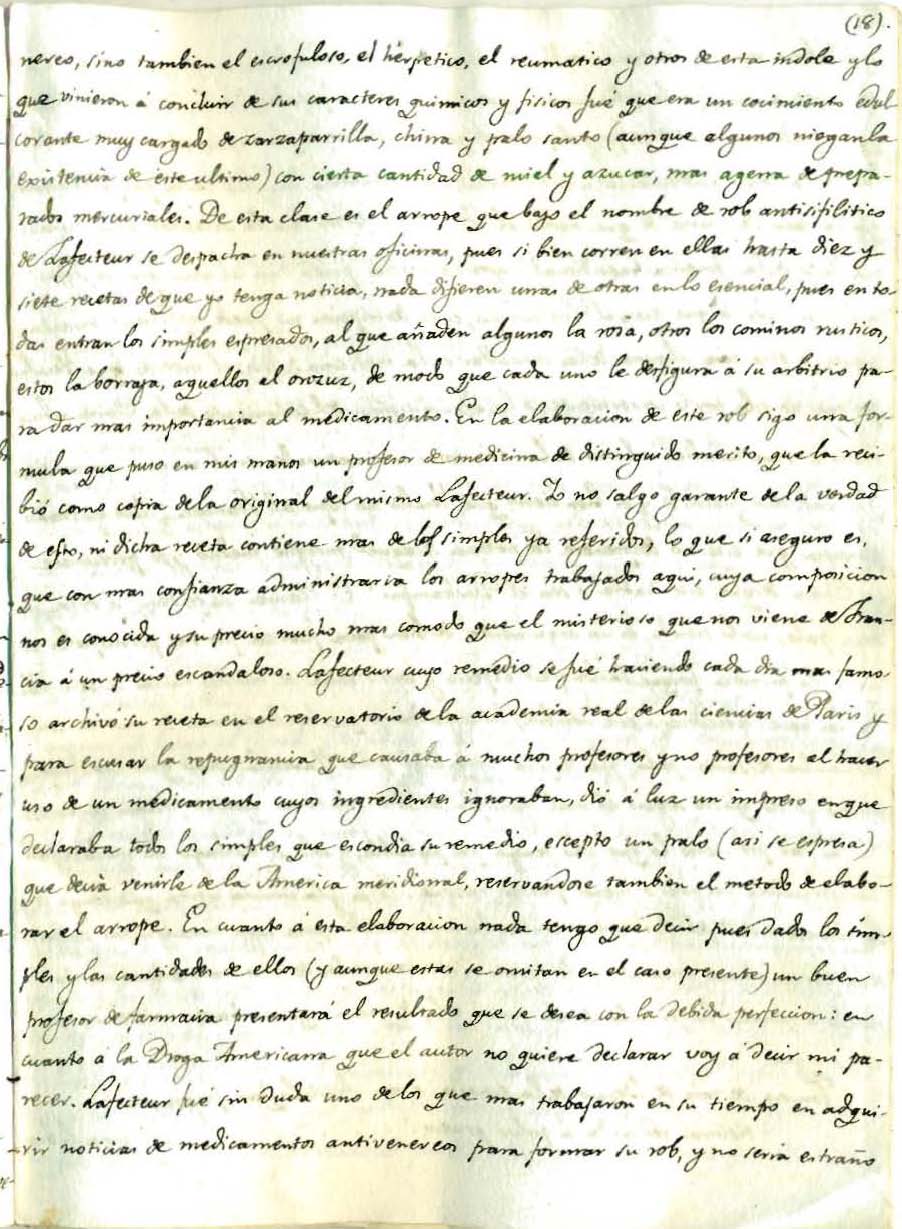 (18).
nereo, sino tambien el escrofuloso, el hérpetico, el reumatico y otros de esta indole y lo
que vinieron á concluir de sus caracteres quimicos y fisicos fué que era un cocimiento edul
corante muy cargado de zarzaparrilla, china y palo santo (aunque algunos niegan la
existencia de éste ultimo) con cierta cantidad de miel y azucar, mas agena de prepa-
rados mercuriales. De esta clase es el arrope que bajo el nombre de rob antisifilitico
de Lafecteur se despacha en nuestras oficinas, pues si bien corren en ellas hasta diez y
siete recetas de que yo tenga noticia, nada difieren unas de otras en lo esencial, pues en to-
das entran los simples espresados, al que añaden algunos la rosa, otros los cominos rusticos,
estos la borraja, aquellos el orozuz, de modo que cada uno le desfigura á su arbitrio pa-
ra dar mas importancia al medicamento. En la elaboracion de este rob sigo una for-
mula que puso en mis manos un profesor de medicina de distinguido merito, que la reci-
bió como copia de la original del mismo Lafecteur. Yo no salgo garante de la verdad
de esto, ni dicha receta contiene mas de los simples ya referidos, lo que si aseguro es,
que con mas confianza administraria los arropes trabajados aqui, cuya composicion
nos es conocida y su precio mucho mas comodo que el misterioso que nos viene de Fran-
cia á un precio escandaloso. Lafecteur cuyo remedio se fué haciendo cada dia mas famo-
so archivó su receta en el reservatorio de la academia real de las ciencias de Paris y
para escusar la repugnancia que causaba á muchos profesores y no profesores el hacer
uso de un medicamento cuyos ingredientes ignoraban, dió á luz un impreso en que
declaraba todos los simples que escondia su remedio, escepto un palo (asi se espresa)
que decia venirle de la America meridional, reservandose tambien el metodo de elabo-
rar el arrope. En cuanto á esta elaboracion nada tengo que decir pues dados los sim-
ples y las cantidades de ellos (y aunque estas se omitan en el caso presente) un buen
profesor de farmacia presentará el resultado que se desea con la debida perfeccion: en
cuanto á la Droga Americana que el autor no quiere declarar voy á decir mi pa-
recer. Lafecteur fué sin duda uno de los que mas trabajaron en su tiempo en adqui-
rir noticias de medicamentos antivenereos para formar su rob, y no seria estraño